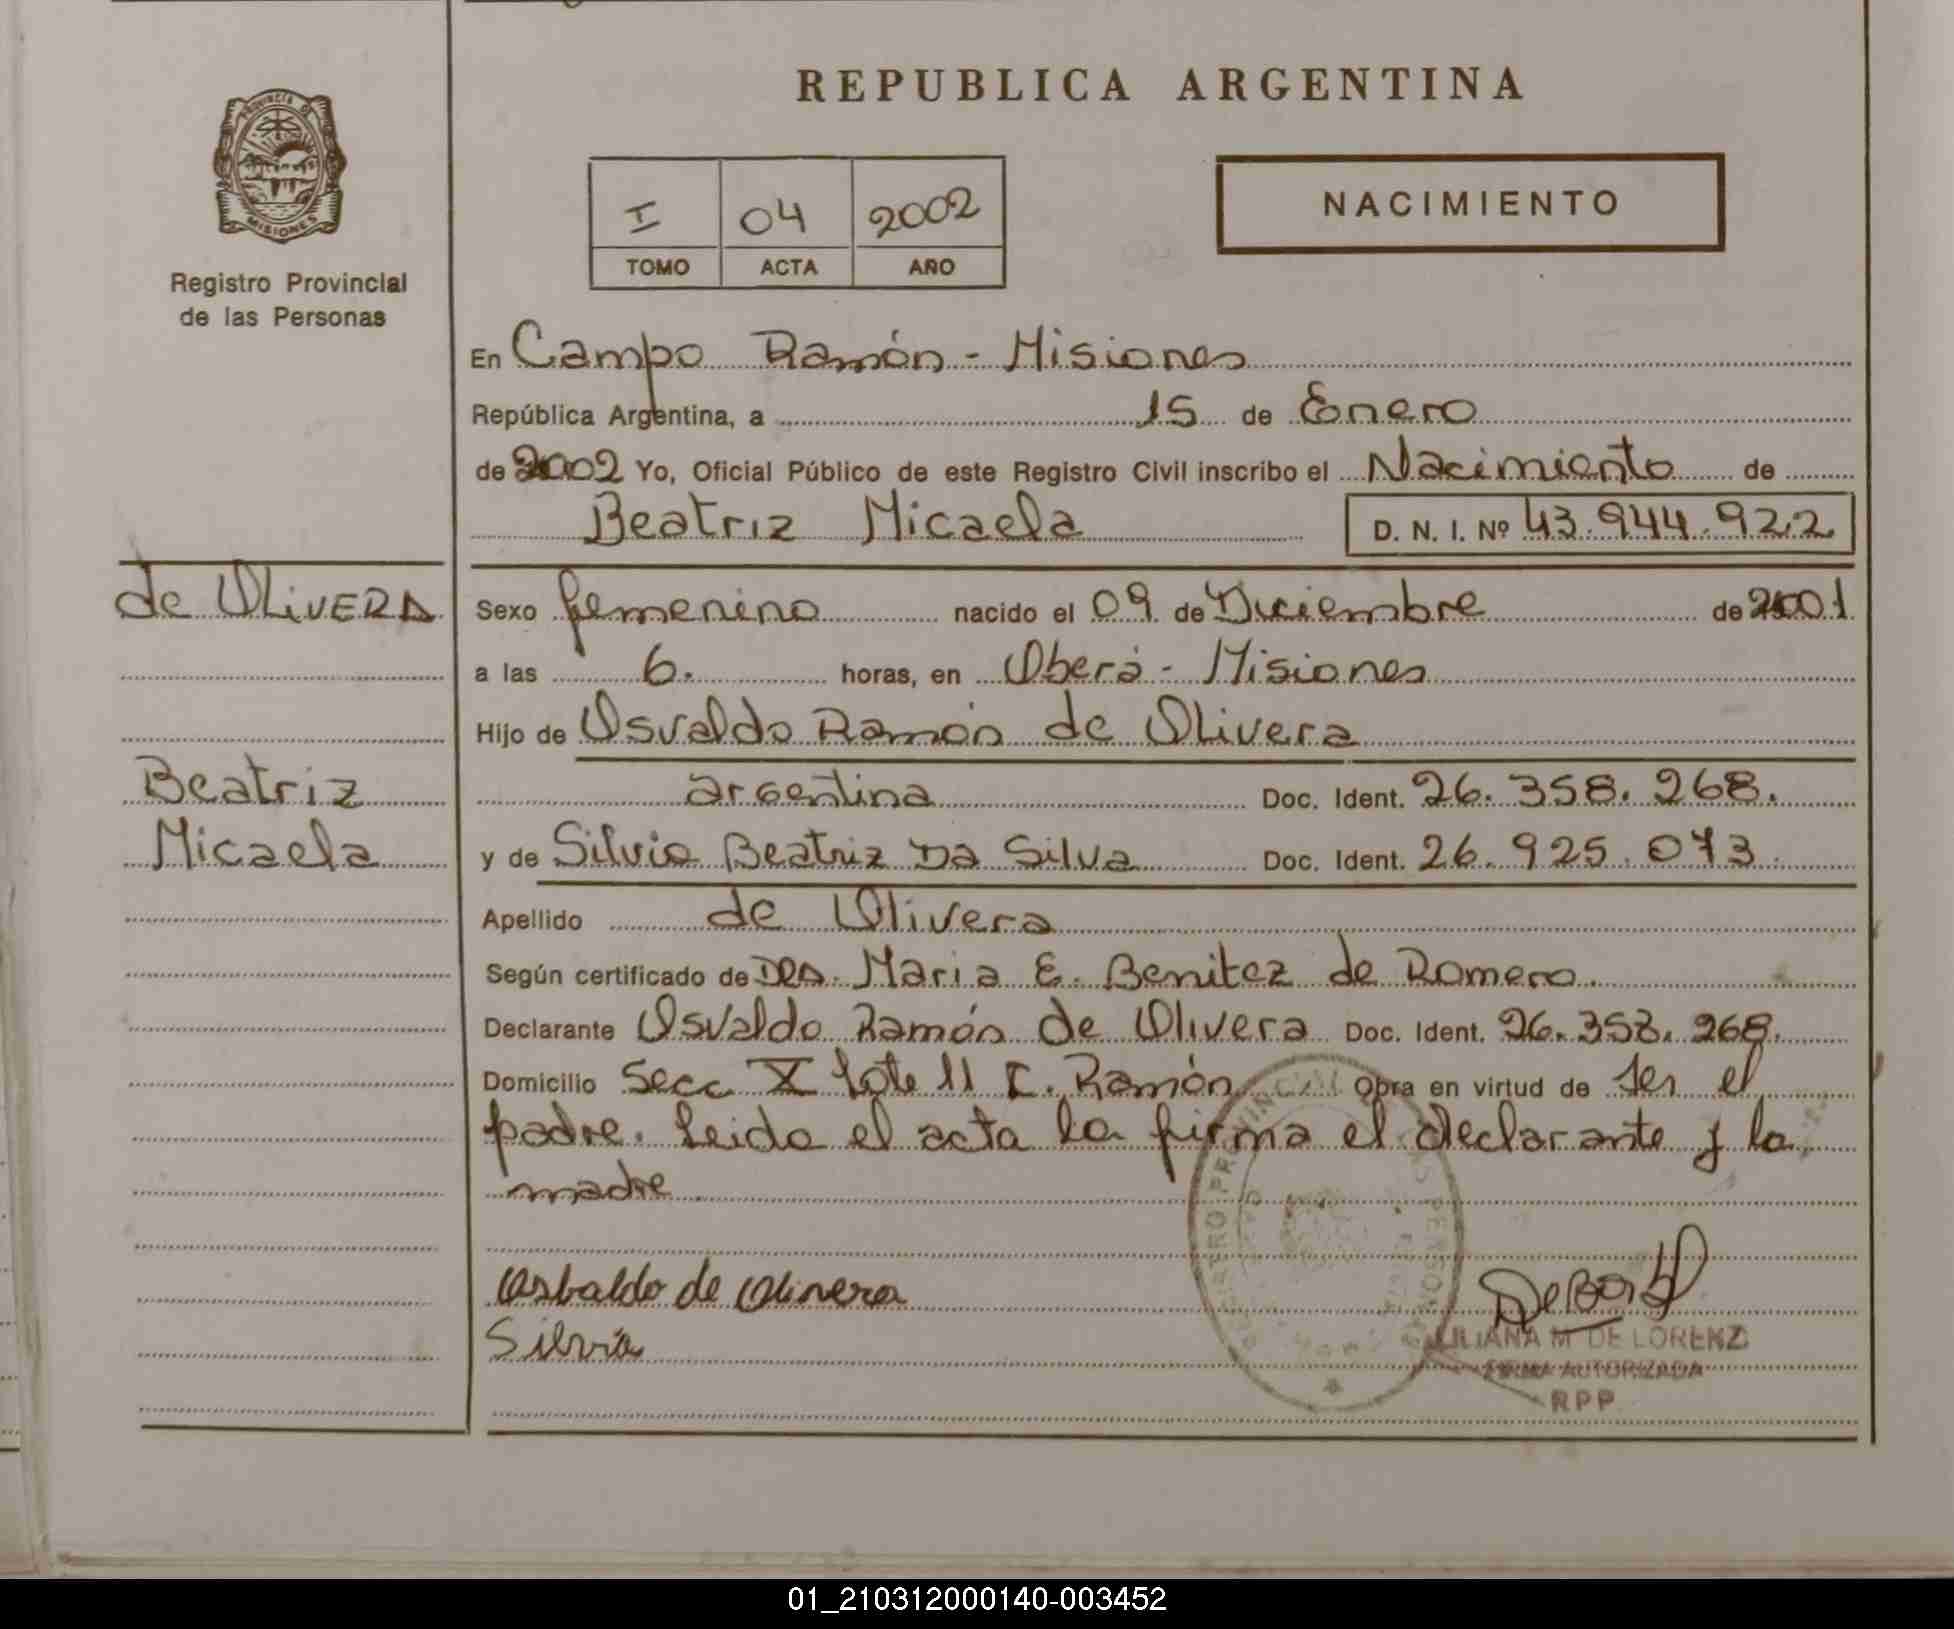 REPUBLICA ARGENTINA
PROVINCIA DE
MISIONES
Registro Provincial
de las Personas
I 04 2002
TOMO ACTA AÑO
NACIMIENTO
En Campo Ramón - Misiones
República Argentina, a 15 de Enero
de 2002 Yo, Oficial Público de este Registro Civil inscribo el Nacimiento de
Beatriz Micaela D. N. I. Nº 43.944.922
de OLiVERA
Beatriz
Micaela
Sexo femenino nacido el 09 de Diciembre de 2001
a las 6. horas, en Oberá - Misiones
Hijo de Osvaldo Ramón de Olivera
argentina Doc. Ident. 26.358.268.
y de Silvia Beatriz Da Silva Doc. Ident. 26.925.073.
Apellido de Olivera
Según certificado de DRA. Maria E. Benitez de Romero.
Declarante Osvaldo Ramón de Olivera Doc. Ident. 26.358.268.
Domicilio Secc X Lote 11 C. Ramón Obra en virtud de ser el
padre. Leida el acta la firma el declarante y la
madre
Osbaldo de Olivera
Silvia
LILIANA M DE LORENZI
FIRMA AUTORIZADA
RPP
01_210312000140-003452